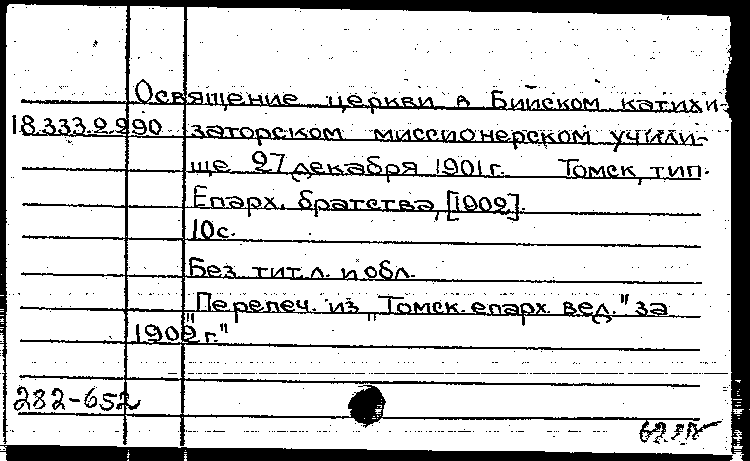 Освящение церкви в Бийском катихи-
18.333.2.290 заторском миссионерском учили-
ще 27 декабря 1901 г. Томск, тип.
Епарх. братства, [1902].
10 с.
Без тит. л. и обл.
"Перепеч. из „Томск. епарх. вед." за
1902 г."
282-652